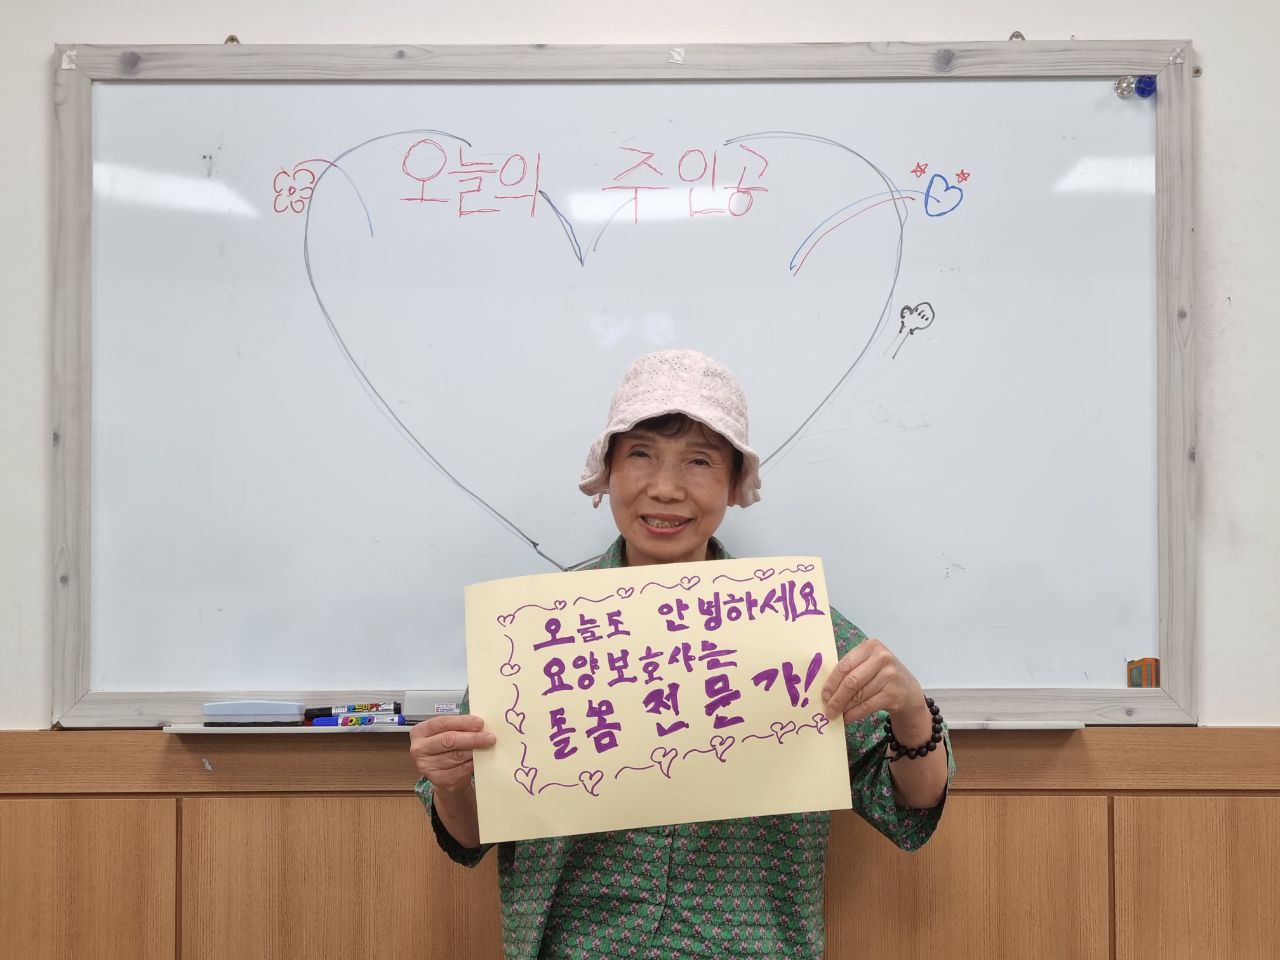 오늘의 주인공
오늘도 안녕하세요
요양보호사는
돌봄 전문가!